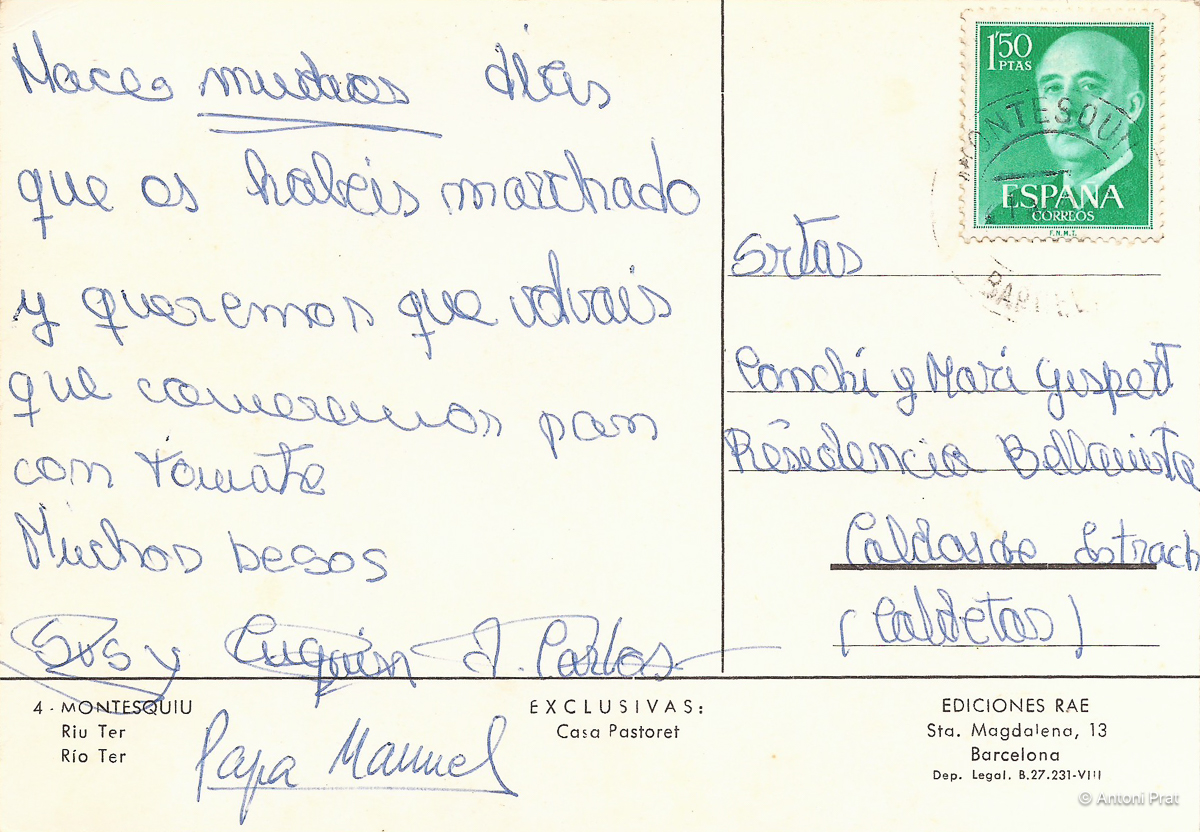 Hace muchos dias
que os habeis marchado
y queremos que volvais
que comeremos pan
con tomate
Muchos besos
Susy Cuquin J. Carlos
Papa Manuel
1'50
PTAS
ESPAÑA
CORREOS
F.N.M.T.
MONTESQUI
Srtas
Conchi y Mari Gispert
Residencia Bellavista
Caldas de Estrach
(Caldetas)
4 - MONTESQUIU
Riu Ter
Río Ter
EXCLUSIVAS:
Casa Pastoret
EDICIONES RAE
Sta. Magdalena, 13
Barcelona
Dep. Legal. B.27.231-VIII
© Antoni Prat